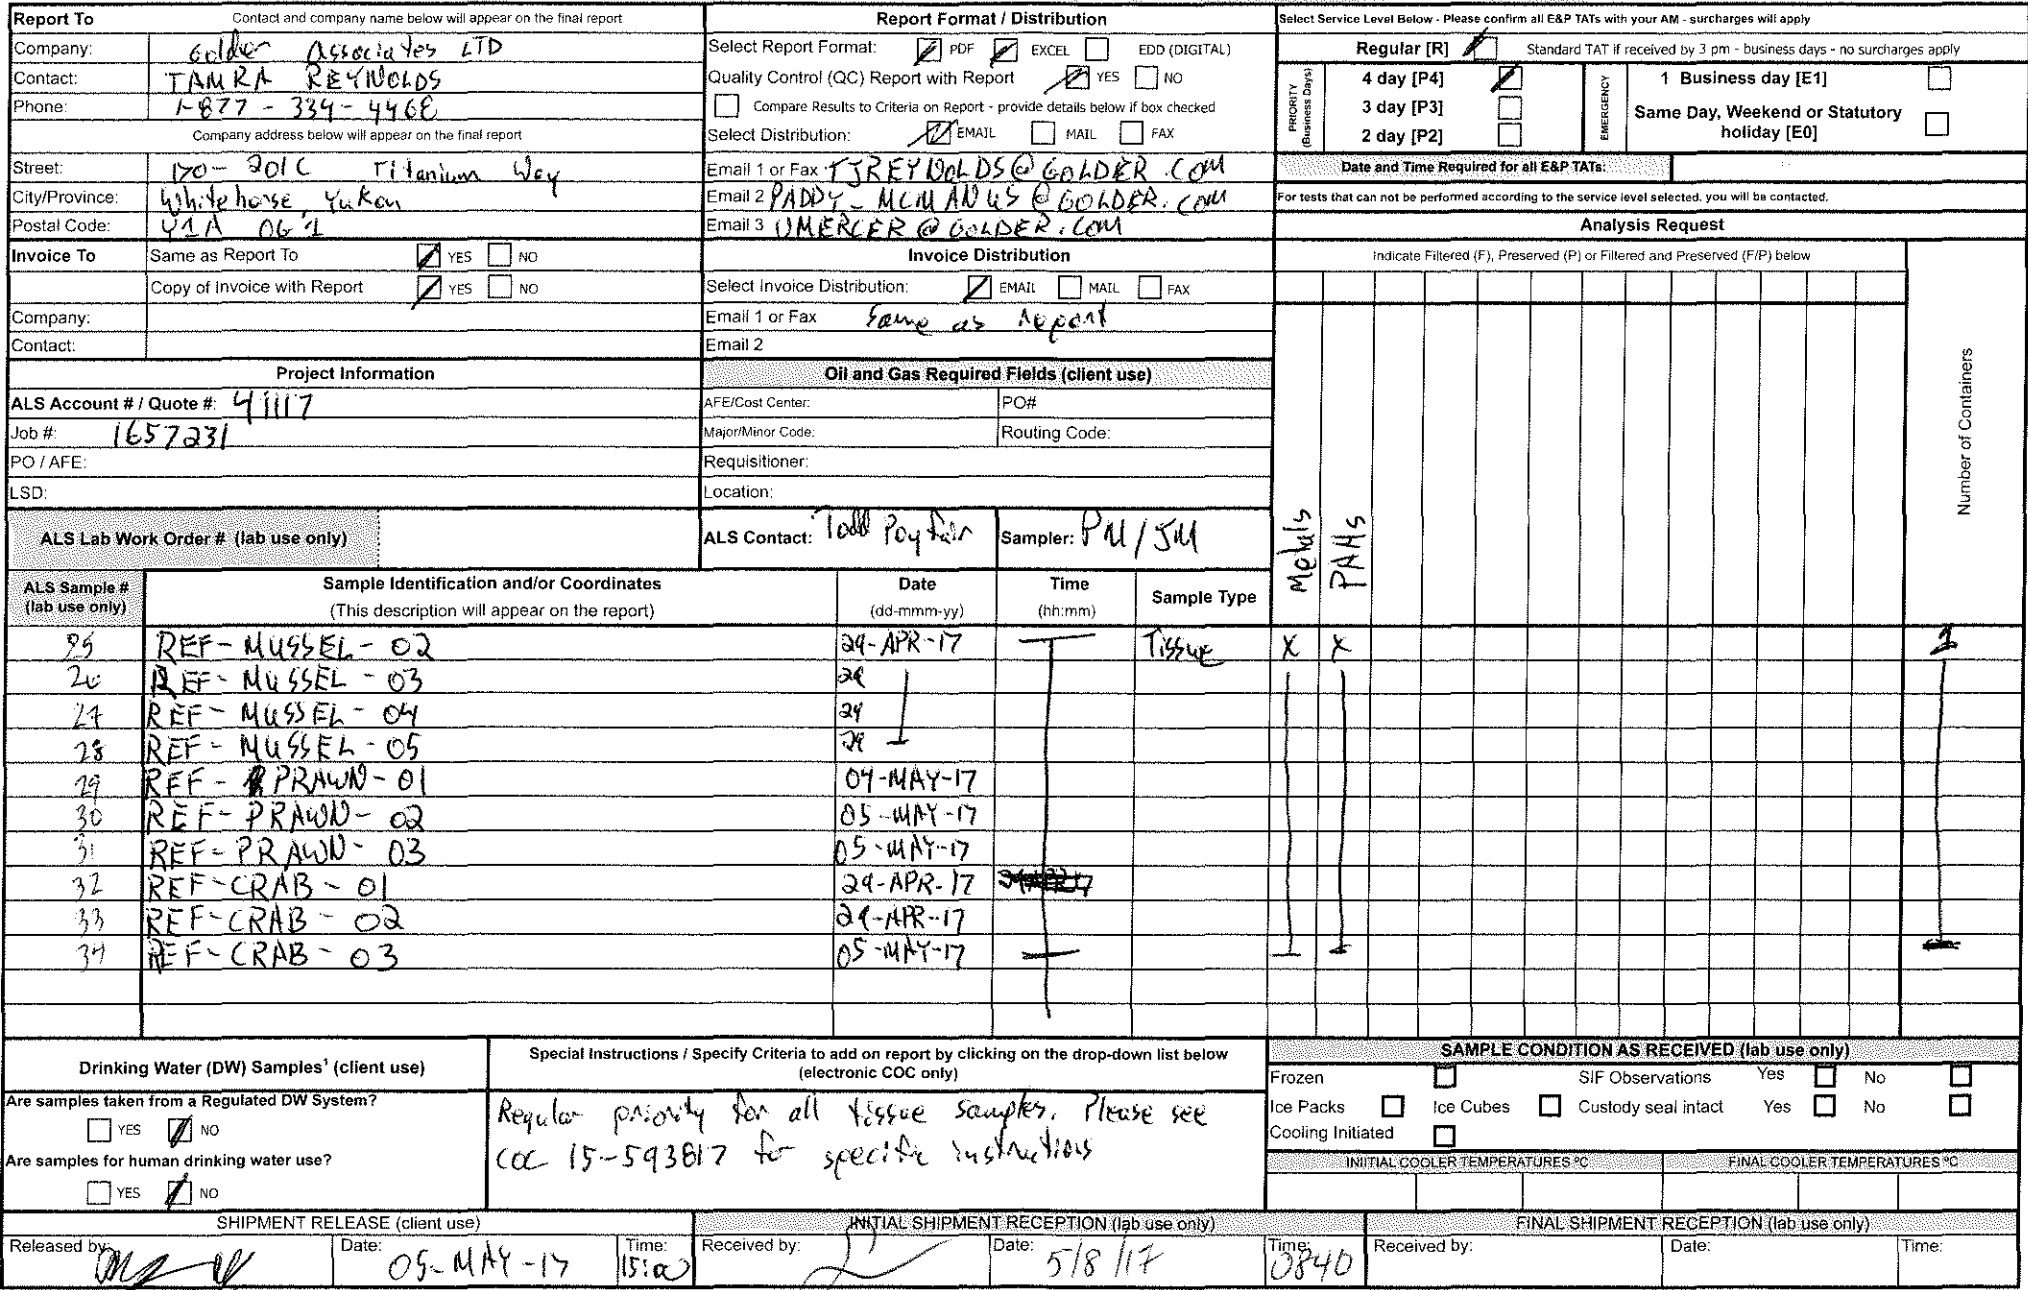 Report To Contact and company name below will appear on the final report
Company: Golder Associates LTD
Contact: TAMRA REYNOLDS
Phone: 1-877-334-4468
Company address below will appear on the final report
Street: 170-201C Titanium Way
City/Province: Whitehorse, Yukon
Postal Code: Y1A 0G1
Invoice To Same as Report To YES NO
Copy of Invoice with Report YES NO
Company:
Contact:
Project Information
ALS Account # / Quote #: 41117
Job #: 1657231
PO / AFE:
LSD:
ALS Lab Work Order # (lab use only)
Report Format / Distribution
Select Report Format: PDF EXCEL EDD (DIGITAL)
Quality Control (QC) Report with Report YES NO
Compare Results to Criteria on Report - provide details below if box checked
Select Distribution: EMAIL MAIL FAX
Email 1 or Fax TJREYNOLDS@GOLDER.COM
Email 2 PADDY_MCMANUS@GOLDER.COM
Email 3 JMERCER@GOLDER.COM
Invoice Distribution
Select Invoice Distribution: EMAIL MAIL FAX
Email 1 or Fax Same as report
Email 2
Oil and Gas Required Fields (client use)
AFE/Cost Center: PO#
Major/Minor Code: Routing Code:
Requisitioner:
Location:
ALS Contact: Todd Sampler: PM/JM
Select Service Level Below - Please confirm all E&P TATs with your AM - surcharges will apply
Regular [R] Standard TAT if received by 3 pm - business days - no surcharges apply
PRIORITY (Business Days)
4 day [P4]
3 day [P3]
2 day [P2]
EMERGENCY
1 Business day [E1]
Same Day, Weekend or Statutory
holiday [E0]
Date and Time Required for all E&P TATs:
For tests that can not be performed according to the service level selected, you will be contacted.
Analysis Request
Indicate Filtered (F), Preserved (P) or Filtered and Preserved (F/P) below
Metals
PAHs
Number of Containers
ALS Sample # (lab use only) Sample Identification and/or Coordinates (This description will appear on the report) Date (dd-mmm-yy) Time (hh:mm) Sample Type
25 REF-MUSSEL-02 29-APR-17 Tissue X X 1
26 REF-MUSSEL-03 29
27 REF-MUSSEL-04 29
28 REF-MUSSEL-05 29
29 REF-PRAWN-01 04-MAY-17
30 REF-PRAWN-02 05-MAY-17
31 REF-PRAWN-03 05-MAY-17
32 REF-CRAB-01 29-APR-17
33 REF-CRAB-02 29-APR-17
34 REF-CRAB-03 05-MAY-17
Drinking Water (DW) Samples¹ (client use)
Are samples taken from a Regulated DW System?
YES NO
Are samples for human drinking water use?
YES NO
Special Instructions / Specify Criteria to add on report by clicking on the drop-down list below
(electronic COC only)
Regular priority for all tissue samples. Please see
COC 15-593817 for specific instructions
SAMPLE CONDITION AS RECEIVED (lab use only)
Frozen SIF Observations Yes No
Ice Packs Ice Cubes Custody seal intact Yes No
Cooling Initiated
INITIAL COOLER TEMPERATURES ºC FINAL COOLER TEMPERATURES ºC
SHIPMENT RELEASE (client use) INITIAL SHIPMENT RECEPTION (lab use only) FINAL SHIPMENT RECEPTION (lab use only)
Released by: Date: 05-MAY-17 Time: 15:00 Received by: Date: 5/8/17 Time: 0840 Received by: Date: Time: